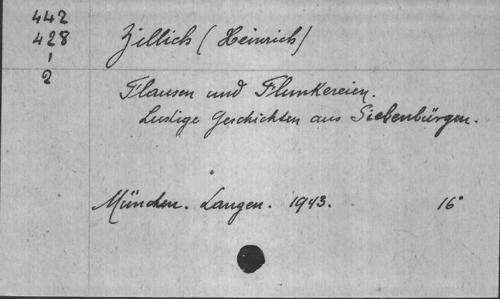 442
428
1
2
Zillich (Heinrich)
Flausen und Flunkereien.
Lustige Geschichten aus Siebenbürgen.
München. Langen. 1943. 16°